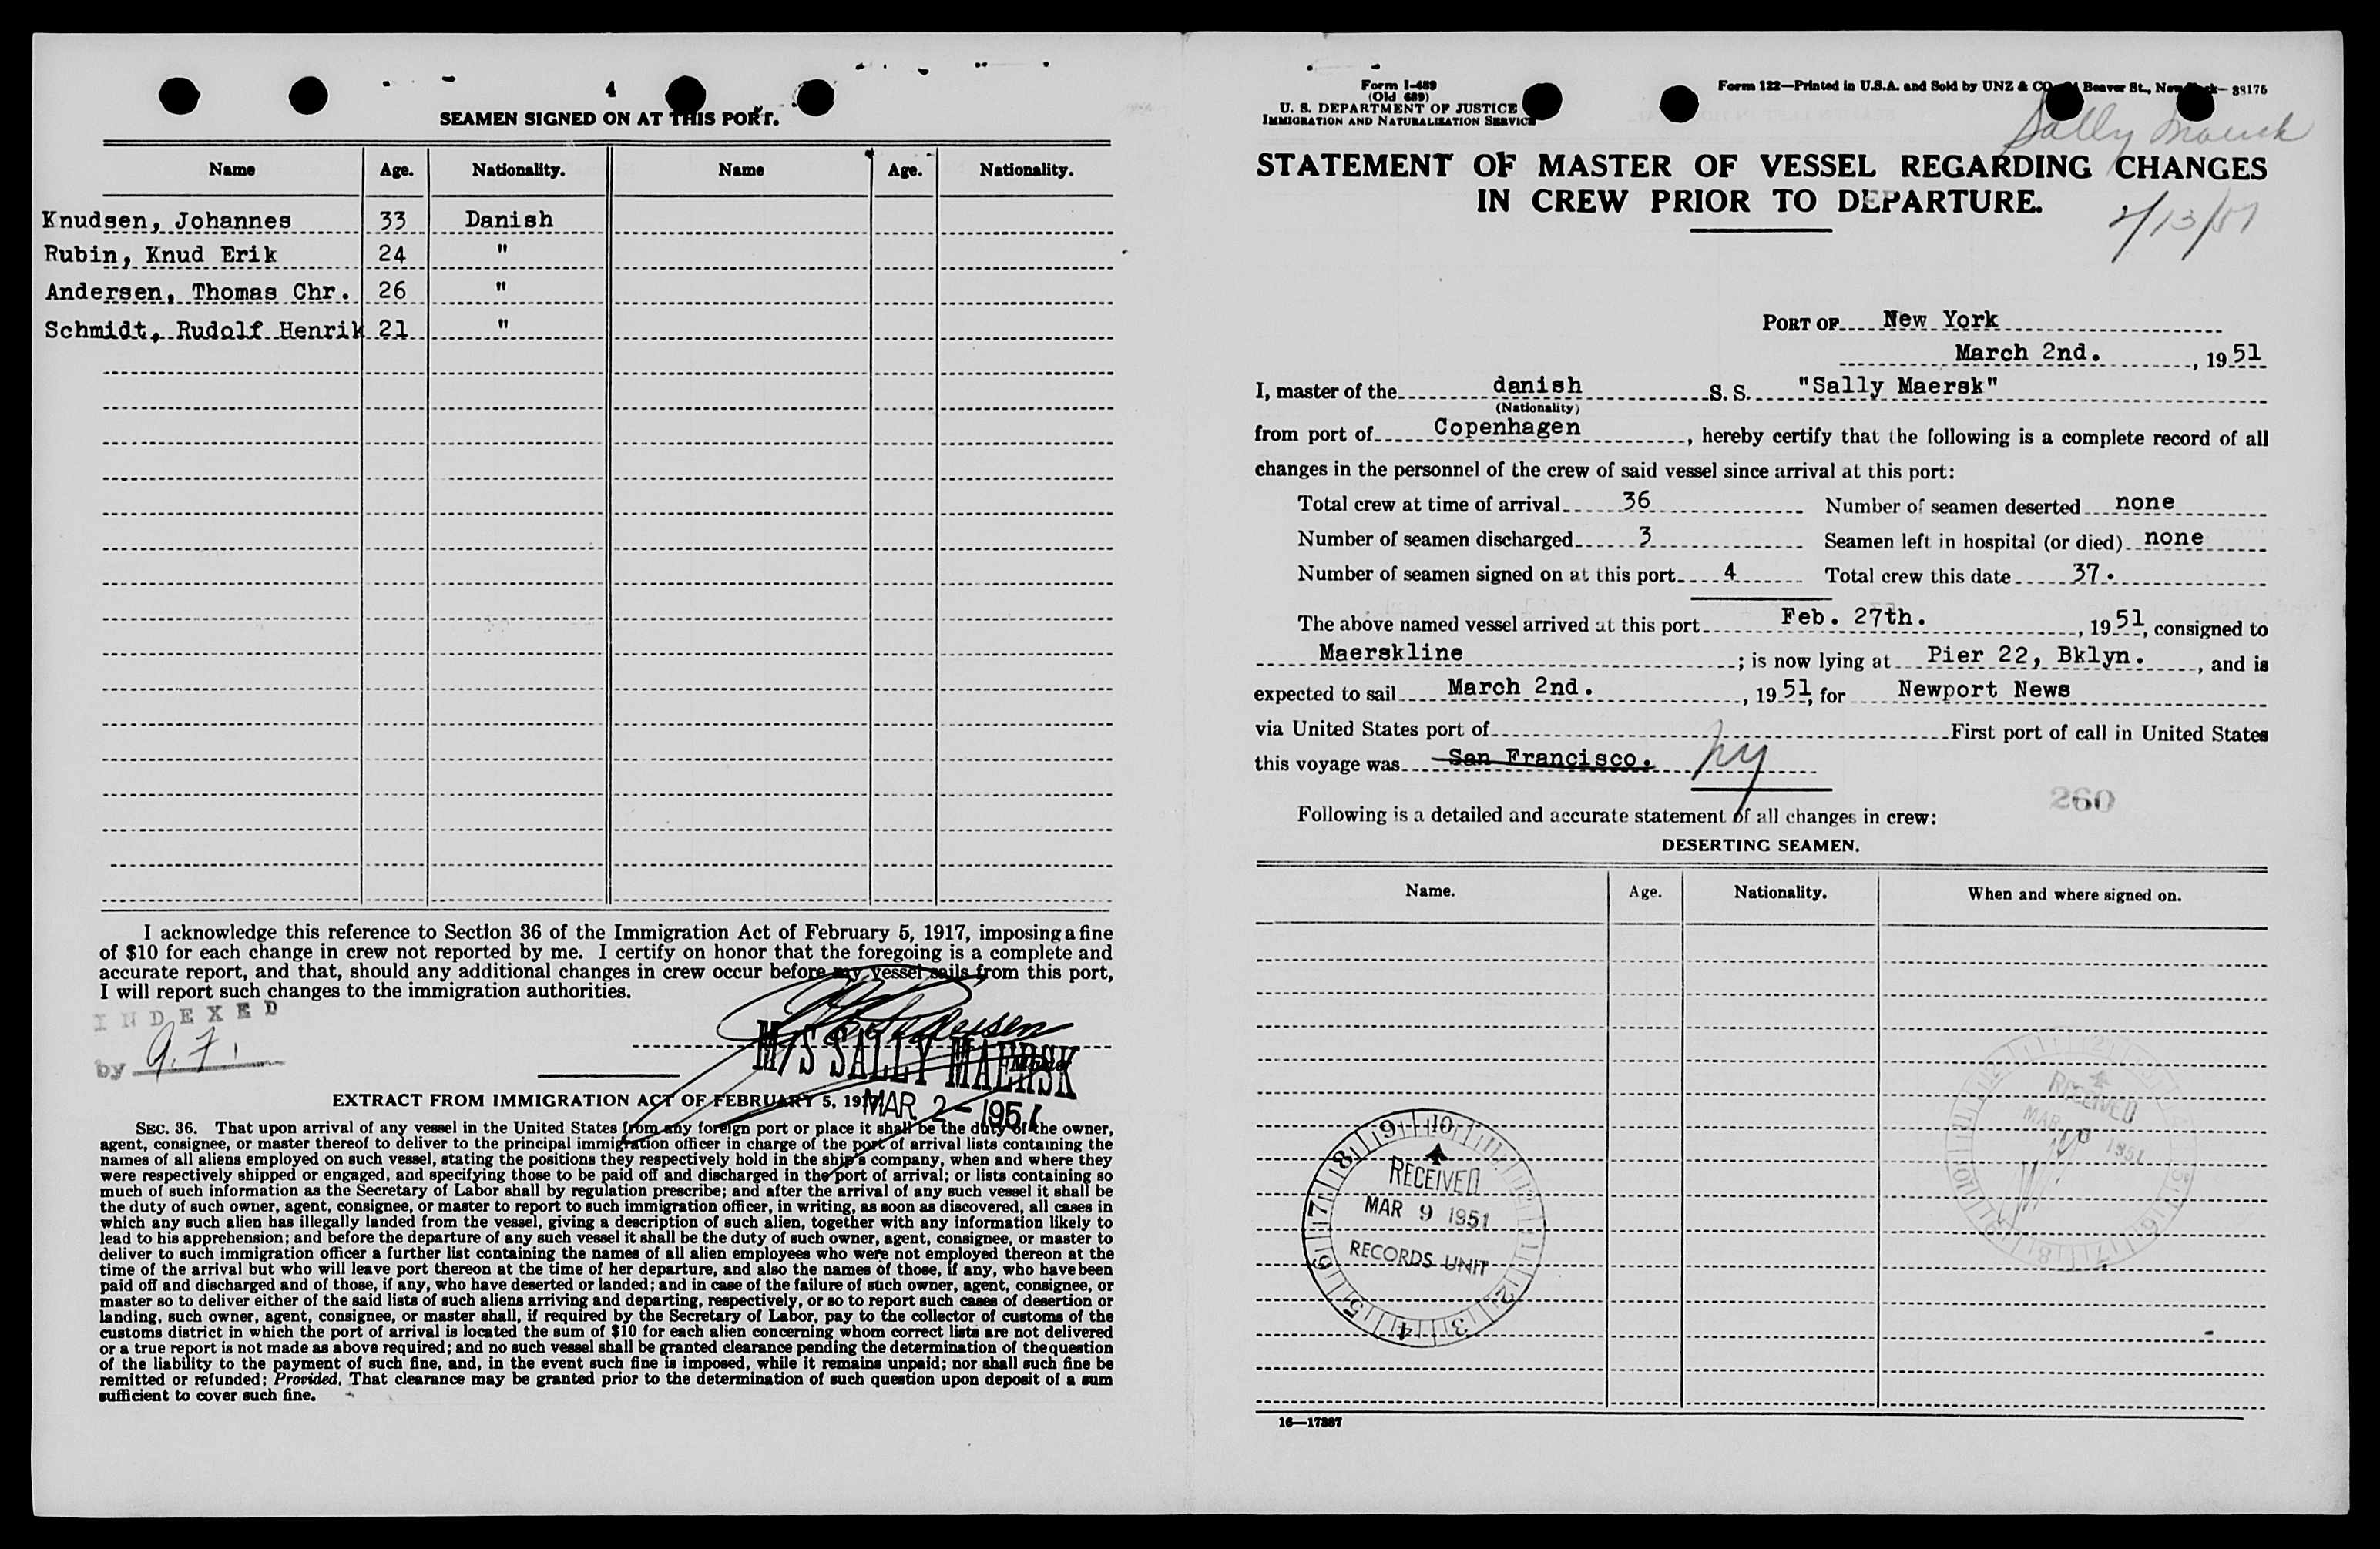 4
SEAMEN SIGNED ON AT THIS PORT.
Name Age. Nationality. Name Age. Nationality.
Knudsen, Johannes 33 Danish
Rubin, Knud Erik 24 "
Andersen, Thomas Chr. 26 "
Schmidt, Rudolf Henrik 21 "
I acknowledge this reference to Section 36 of the Immigration Act of February 5, 1917, imposing a fine
of $10 for each change in crew not reported by me. I certify on honor that the foregoing is a complete and
accurate report, and that, should any additional changes in crew occur before my vessel sails from this port,
I will report such changes to the immigration authorities.
INDEXED
by
M/S SALLY MAERSK
MAR 2-1951
EXTRACT FROM IMMIGRATION ACT OF FEBRUARY 5, 1917
SEC. 36. That upon arrival of any vessel in the United States from any foreign port or place it shall be the duty of the owner,
agent, consignee, or master thereof to deliver to the principal immigration officer in charge of the port of arrival lists containing the
names of all aliens employed on such vessel, stating the positions they respectively hold in the ship's company, when and where they
were respectively shipped or engaged, and specifying those to be paid off and discharged in the port of arrival; or lists containing so
much of such information as the Secretary of Labor shall by regulation prescribe; and after the arrival of any such vessel it shall be
the duty of such owner, agent, consignee, or master to report to such immigration officer, in writing, as soon as discovered, all cases in
which any such alien has illegally landed from the vessel, giving a description of such alien, together with any information likely to
lead to his apprehension; and before the departure of any such vessel it shall be the duty of such owner, agent, consignee, or master to
deliver to such immigration officer a further list containing the names of all alien employees who were not employed thereon at the
time of the arrival but who will leave port thereon at the time of her departure, and also the names of those, if any, who have been
paid off and discharged and of those, if any, who have deserted or landed; and in case of the failure of such owner, agent, consignee, or
master so to deliver either of the said lists of such aliens arriving and departing, respectively, or so to report such cases of desertion or
landing, such owner, agent, consignee, or master shall, if required by the Secretary of Labor, pay to the collector of customs of the
customs district in which the port of arrival is located the sum of $10 for each alien concerning whom correct lists are not delivered
or a true report is not made as above required; and no such vessel shall be granted clearance pending the determination of the question
of the liability to the payment of such fine, and, in the event such fine is imposed, while it remains unpaid; nor shall such fine be
remitted or refunded; Provided, That clearance may be granted prior to the determination of such question upon deposit of a sum
sufficient to cover such fine.
Form I-489
(Old 689)
U. S. DEPARTMENT OF JUSTICE
IMMIGRATION AND NATURALIZATION SERVICE
Form 122—Printed in U.S.A. and Sold by UNZ & CO Beaver St., New 38175
Sally Maersk
STATEMENT OF MASTER OF VESSEL REGARDING CHANGES
IN CREW PRIOR TO DEPARTURE.
PORT OF New York
March 2nd., 1951
I, master of the danish S. S. "Sally Maersk"
(Nationality)
from port of Copenhagen, hereby certify that the following is a complete record of all
changes in the personnel of the crew of said vessel since arrival at this port:
Total crew at time of arrival 36 Number of seamen deserted none
Number of seamen discharged 3 Seamen left in hospital (or died) none
Number of seamen signed on at this port 4 Total crew this date 37.
The above named vessel arrived at this port Feb. 27th., 1951, consigned to
Maerskline; is now lying at Pier 22, Bklyn., and is
expected to sail March 2nd., 1951, for Newport News
via United States port of First port of call in United States
this voyage was San Francisco. ny
260
Following is a detailed and accurate statement of all changes in crew:
DESERTING SEAMEN.
Name. Age. Nationality. When and where signed on.
RECEIVED
MAR 1951
RECEIVED
MAR 9 1951
RECORDS UNIT
16—17887